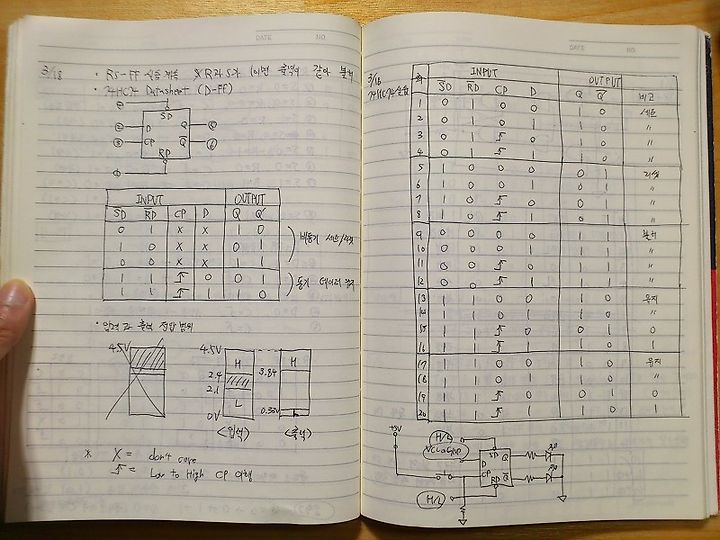 DATE NO
3/18
· 74HC74 Datasheet (D-FF)
SD
D Q
CP Q̅
RD
INPUT OUTPUT
S̅D̅ R̅D̅ CP D Q Q̅
0 1 X X 1 0
1 0 X X 0 1
0 0 X X 1 1
1 1 ↑ 0 0 1
1 1 ↑ 1 1 0
· 입력과 출력 전압 범위
4.5V 4.5V
H H
3.84
2.4
2.1
L
0V 0.33V
<입력> <출력>
* X = don't care
↑ = Low to High CP 이행
DATE NO
3/18
74HC74 실습
INPUT OUTPUT
S̅D̅ R̅D̅ CP D Q Q̅ 비고
1 0 1 0 0 1 0 세트
2 0 1 0 1 1 0 "
3 0 1 ↑ 0 1 0 "
4 0 1 ↑ 1 1 0 "
5 1 0 0 0 0 1 리셋
6 1 0 0 1 0 1 "
7 1 0 ↑ 0 0 1 "
8 1 0 ↑ 1 0 1 "
9 0 0 0 0 1 1
10 0 0 0 1 1 1 "
11 0 0 ↑ 0 1 1 "
12 0 0 ↑ 1 1 1 "
13 1 1 0 0 1 0 유지
14 1 1 0 1 1 0 "
15 1 1 ↑ 0 0 1 0
16 1 1 ↑ 1 1 0 1
17 1 1 0 0 1 0 유지
18 1 1 0 1 1 0 "
19 1 1 ↑ 0 0 1 0
20 1 1 ↑ 1 1 0 1
+5V
H/L
VCC or GND
SD
D Q
CP Q̅
RD
H/L